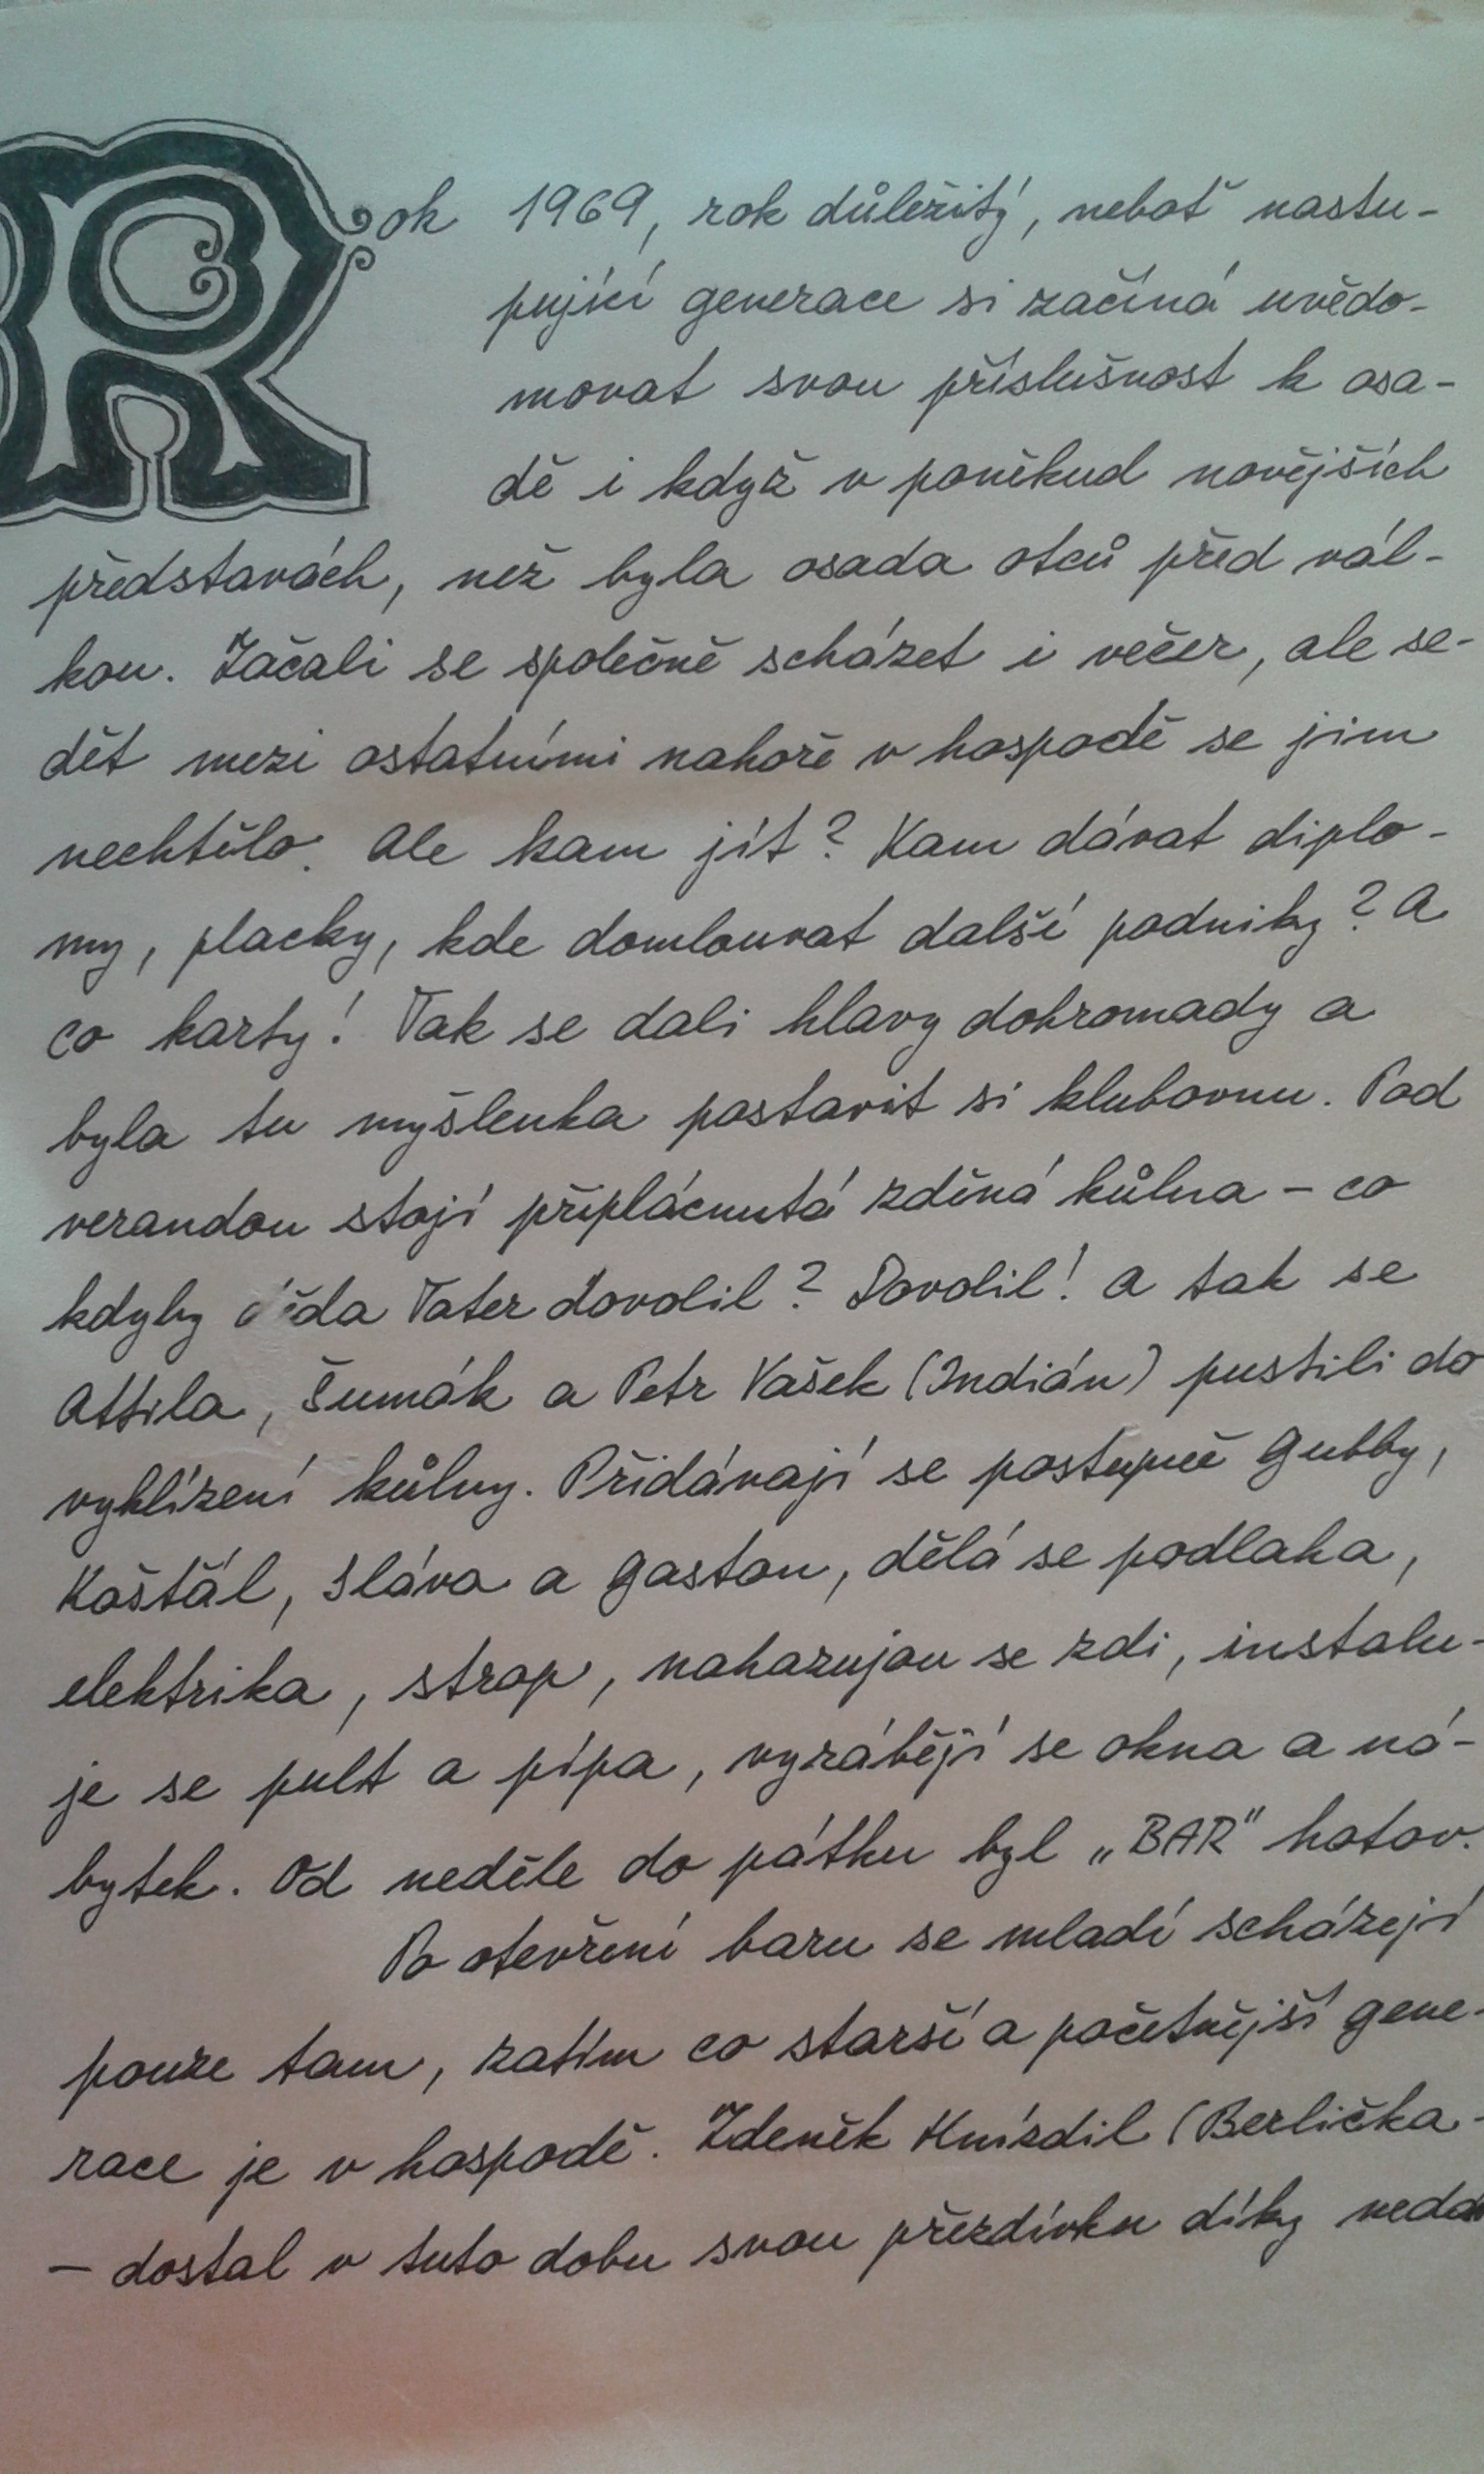 Rok 1969, rok důležitý, neboť nastu-
pující generace si začíná uvědo-
movat svou příslušnost k osa-
dě i když v poněkud novějších
představách, než byla osada otců před vál-
kou. Začali se společně scházet i večer, ale se-
dět mezi ostatními nahoře v hospodě se jim
nechtělo. Ale kam jít? Kam dávat diplo-
my, placky, kde domlouvat další podniky? A
co karty! Tak se dali hlavy dohromady a
byla tu myšlenka postavit si klubovnu. Pod
verandou stojí připlácnutá zděná kůlna - co
kdyby děda Tater dovolil? Dovolil! a tak se
Attila, Šumák a Petr Vašek (Indián) pustili do
vyklízení kůlny. Přidávají se postupně Gubby,
Košťál, Sláva a Gaston, dělá se podlaha,
elektrika, strop, nahazujou se zdi, instalu-
je se pult a pípa, vyrábějí se okna a ná-
bytek. Od neděle do pátku byl „BAR" hotov.
Po otevření baru se mladí scházejí
pouze tam, zatím co starší a početnější gene-
race je v hospodě. Zdeněk Hnízdil (Berlička-
- dostal v tuto dobu svou přezdívku díky nedo